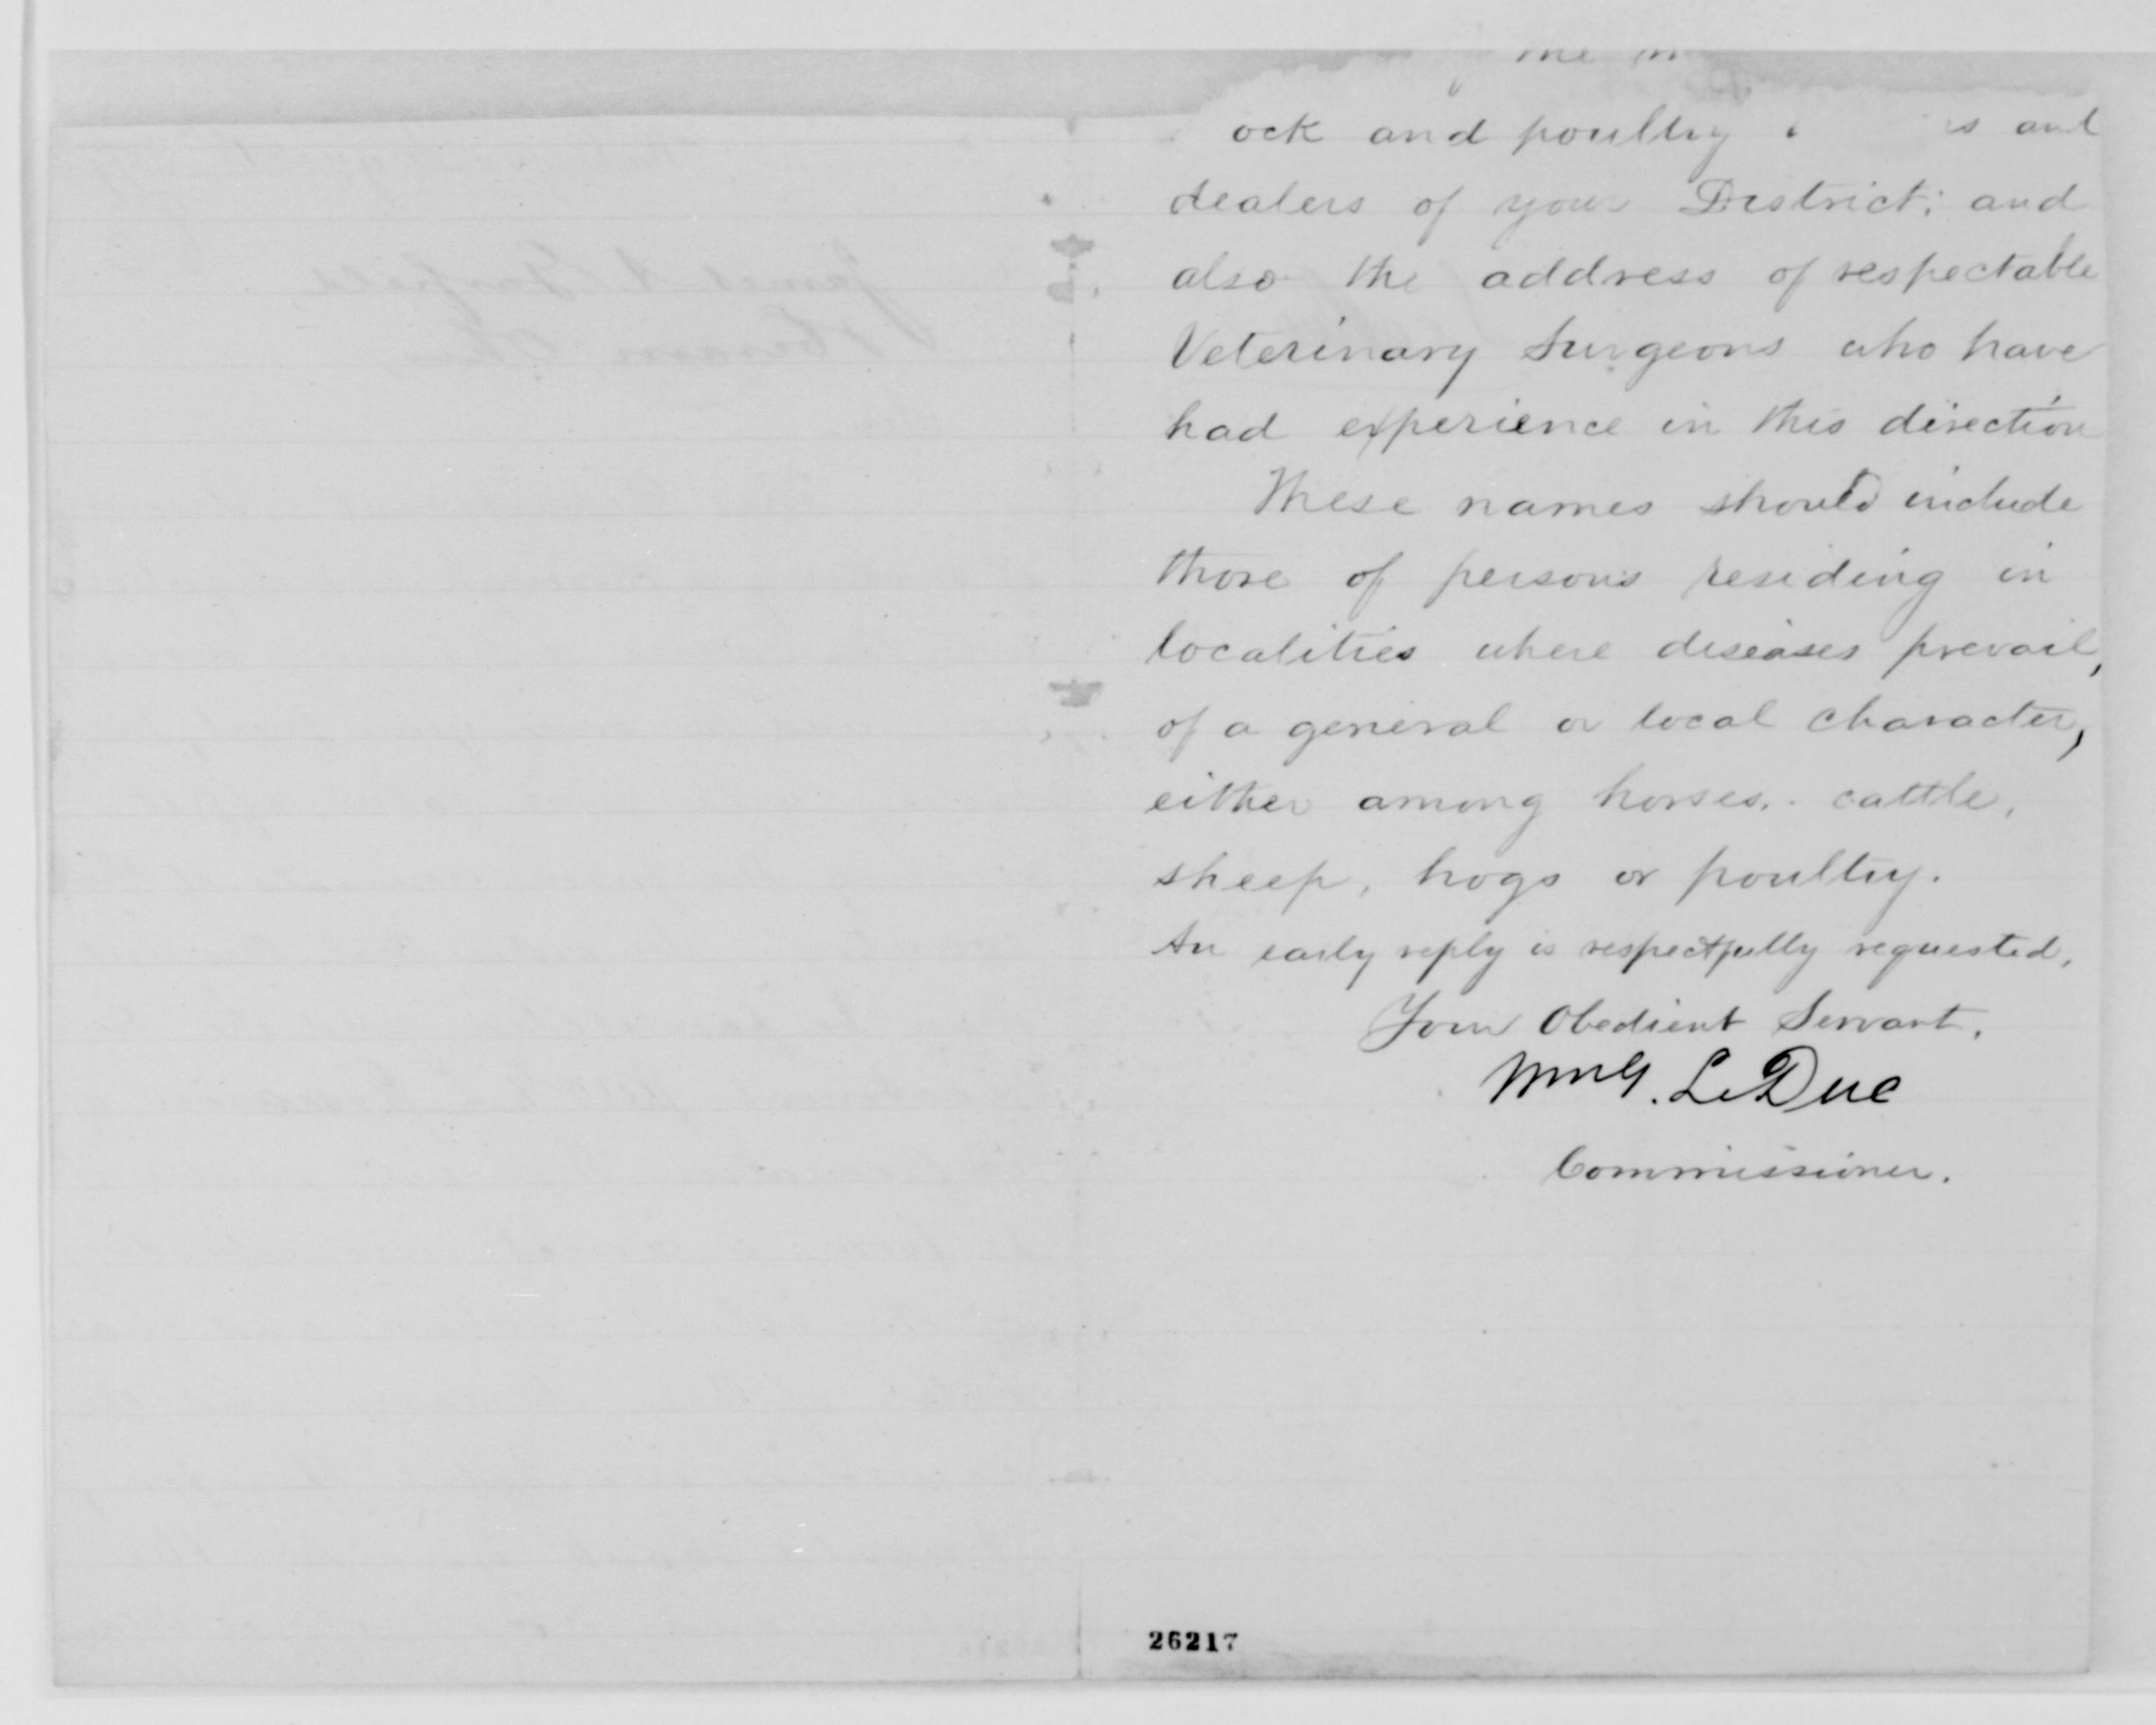 ock and poultry s and
dealers of your District; and
also the address of respectable
Veterinary Surgeons who have
had experience in this direction
These names should include
those of persons residing in
localities where diseases prevail,
of a general or local character,
either among horses, cattle,
sheep, hogs or poultry.
An early reply is respectfully requested.
Your Obedient Servant,
Wm G. LeDuc
Commissioner.
26217